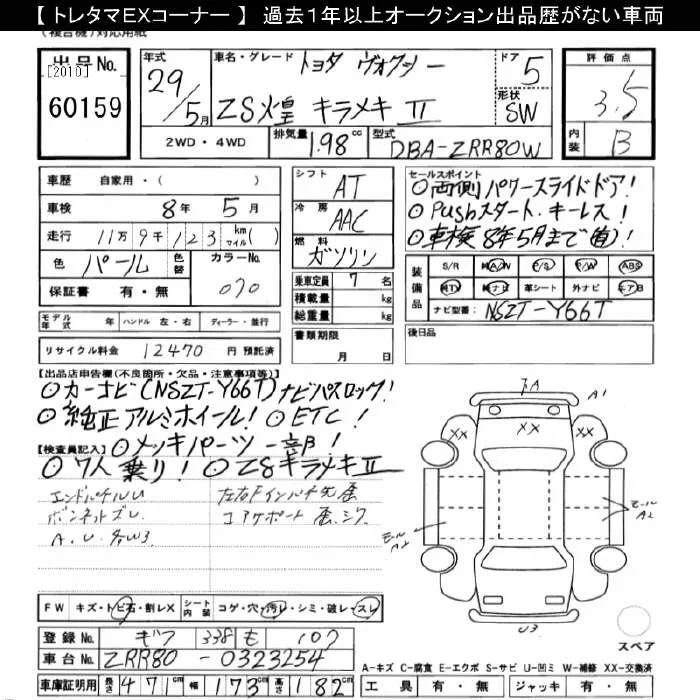 【 トレタマEXコーナー 】 過去１年以上オークション出品歴がない車両
(複合機)対応用紙
出品No. [2010] 60159
年式 29/5月
車名・グレード トヨタ ヴォクシー
ZS煌 キラメキ Ⅱ
ドア 5
形状 SW
評価点 3.5
内装 B
2WD・4WD 排気量 1.98 cc 型式 DBA-ZRR80W
車歴 自家用・( )
車検 8年 5月
走行 11万 9千 123 km マイル( )
色 パール 色替 カラーNo. 070
保証書 有・無
シフト AT
冷房 AAC
燃料 ガソリン
乗車定員 7 名
積載量 kg
総重量 kg
書類期限 月 日
セールスポイント
◎両側パワースライドドア!
◎Pushスタート.キーレス!
◎車検8年5月まで(有)!
装備品 S/R 純A/W P/S P/W ABS
純TV 純ナビ 革シート 外ナビ エアB
ナビ型番: NSZT-Y66T
後日品
モデル年式 年 ハンドル 左・右 ディーラー・並行
リサイクル料金 12470 円 預託済
【出品店申告欄(不良箇所・欠品・注意事項等)】
◎カーナビ(NSZT-Y66T)ナビパスロック!
◎純正アルミホイール! ◎ETC!
【検査員記入】 ◎メッキパーツ一部!
◎7人乗り! ◎ZSキラメキⅡ
ボンネットズレ
A.U.各W3
コアサポート
FW キズ・トビ石・割レX シート内装 コゲ・穴・汚レ・シミ・破レ・スレ
登録No. ギフ 338 も 107
車台No. ZRR80-0323254
車庫証明用 長さ 471cm 幅 173cm 高さ 182cm
A1
XX XX XX
モール A2
モール A2
U3
スペア
A-キズ C-腐食 E-エクボ S-サビ U-凹ミ W-補修 XX-交換済
工具 有・無 ジャッキ 有・無